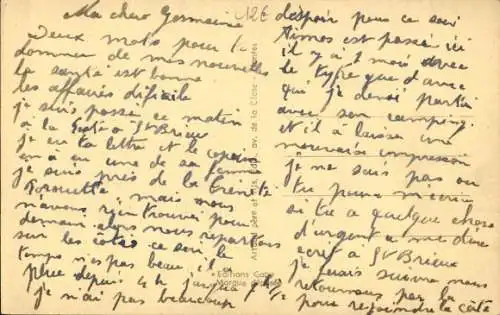 Ma cher Germaine
Deux mots pour te
donner de mes nouvelles
la santé est bonne
les affaires dificile
je suis passé ce matin
à la Poste a St Brieuc
je eu ta lettre et le copain
en a eu une de sa femme
je suis près de la
mais nous
n'avons rien trouver pour
demain alors nous repartons
sur les cotes ce soir le
temps n'es pas beau il a
pluie depuis jusqu'a
je n'ai pas beaucoup
12€
d'espoir pour ce soir
est passé ici
il y a 1 mois avec
le type que d avec
qui je devai partir
avec son camping
et il a laisser une
mauvaise impression
je ne sais pas ou
tu peux m'écrire
si tu a quelque chose
d'urgent a me dire
ecrit à St Brieuc
je ferais suivre nous
retournons par la
pour rejoindre la côte
Editions Gaby
Marque déposée